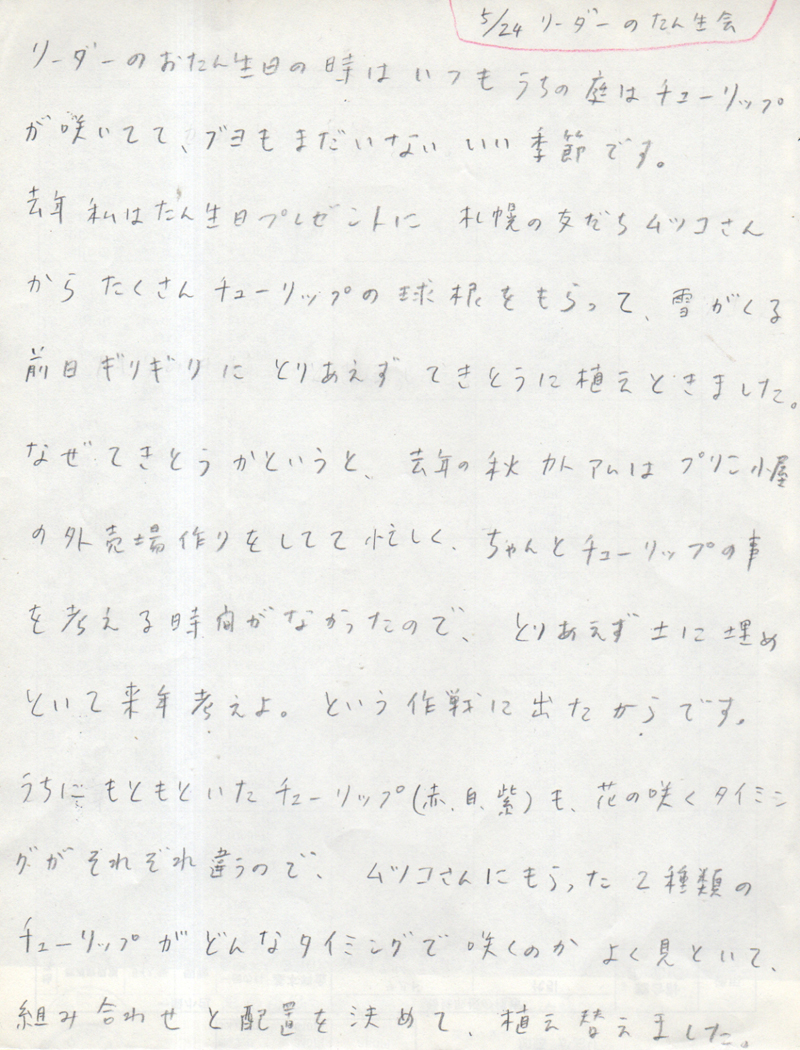 5/24 リーダーのたん生会
リーダーのおたん生日の時はいつもうちの庭はチューリップ
が咲いてて、ブヨもまだいない いい季節です。
去年私はたん生日プレゼントに 札幌の友だちムツコさん
からたくさんチューリップの球根をもらって、雪がくる
前日ギリギリに とりあえず てきとうに植えときました。
なぜてきとうかというと、去年の秋カトアムはプリン小屋
の外売場作りをしてて忙しく、ちゃんとチューリップの事
を考える時間がなかったので、とりあえず土に埋め
といて来年考えよ。という作戦に出たからです。
うちにもともといたチューリップ(赤、白、紫)も、花の咲くタイミン
グがそれぞれ違うので、ムツコさんにもらった2種類の
チューリップがどんなタイミングで咲くのかよく見といて、
組み合わせと配置を決めて、植え替えました。